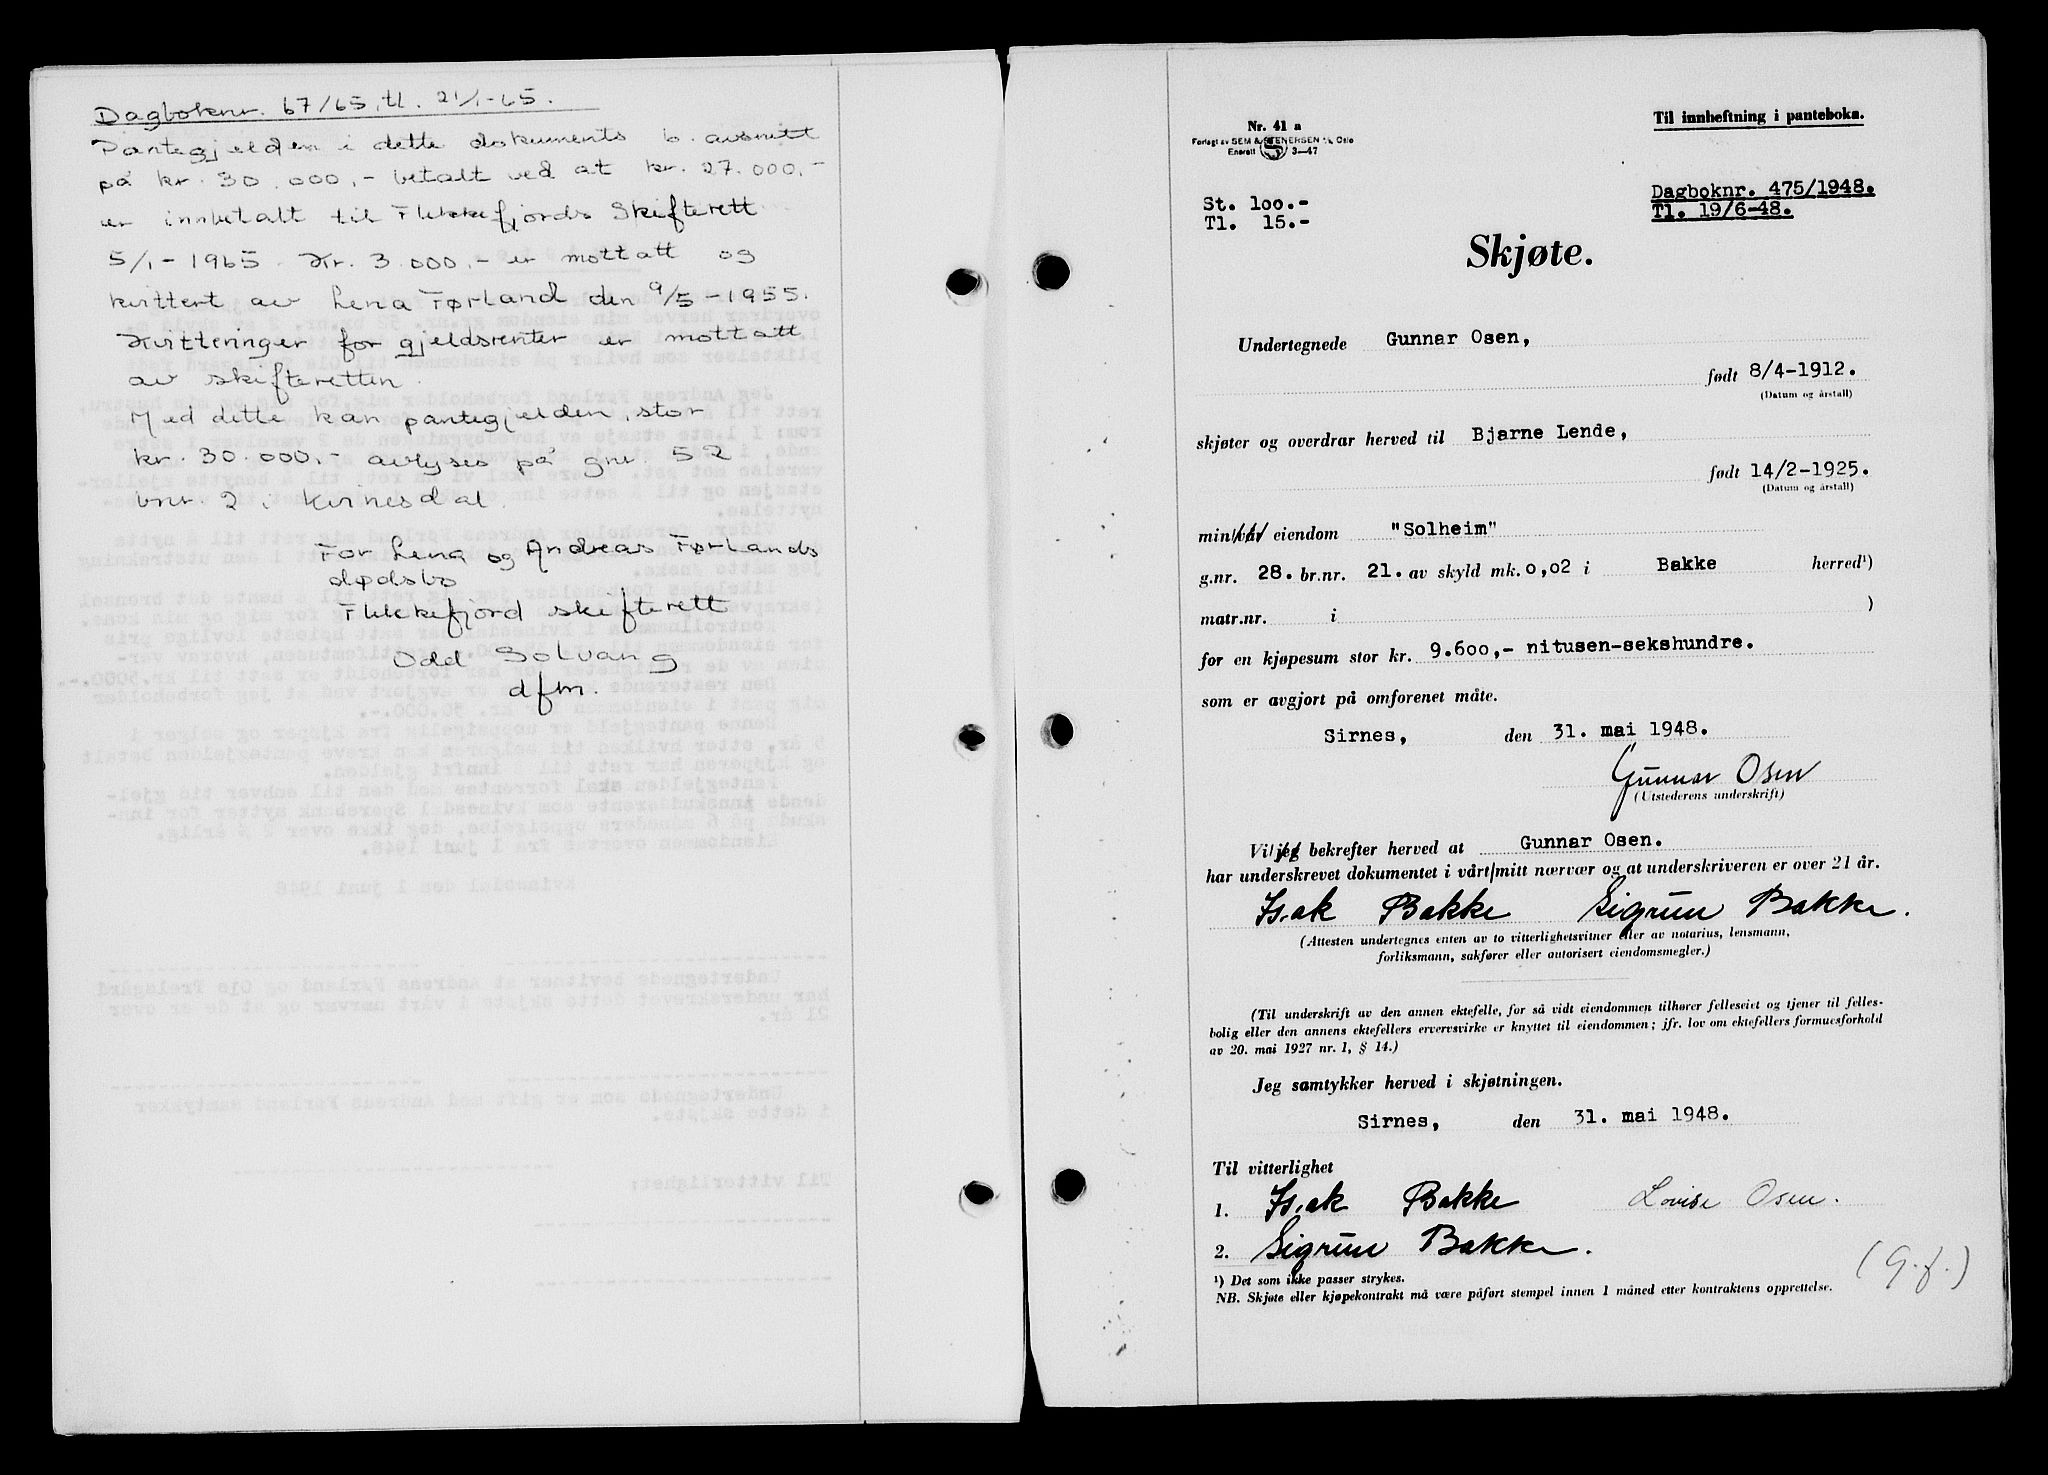 Dagboknr. 67/65, tl. 21/1-65.
Pantegjelden i dette dokuments b. avsnitt
på kr. 30.000,- betalt ved at kr. 27.000,-
er innbetalt til Flekkefjords Skifterett
5/1-1965. Kr. 3.000,- er mottatt og
kvittert av Lena Førland den 9/5-1955.
Kvitteringer for gjeldsrenter er mottatt
av skifteretten.
Med dette kan pantegjelden, stor
kr. 30.000,- avlyses på gnr. 52
bnr. 2 i Kvinesdal.
For Lena og Andreas Førlands
dødsbo
Flekkefjord skifterett
Odd Solvang
dfm.
Nr. 41 a
Forlagt av SEM & STENERSEN A/S, Oslo
Enerett 3-47
Til innheftning i panteboka.
St. 100.-
Tl. 15.-
Dagboknr. 475/1948.
Tl. 19/6-48.
Skjøte.
Undertegnede Gunnar Osen,
født 8/4-1912.
(Datum og årstall)
skjøter og overdrar herved til Bjarne Lende,
født 14/2-1925.
(Datum og årstall)
min/vår eiendom "Solheim"
g.nr. 28. br.nr. 21. av skyld mk. 0,02 i Bakke herred¹)
matr.nr. i )
for en kjøpesum stor kr. 9.600,- nitusen-sekshundre.
som er avgjort på omforenet måte.
Sirnes, den 31. mai 1948.
Gunnar Osen
(Utstederens underskrift)
Vi/jeg bekrefter herved at Gunnar Osen.
har underskrevet dokumentet i vårt/mitt nærvær og at underskriveren er over 21 år.
Isak Bakke Sigrun Bakke.
(Attesten undertegnes enten av to vitterlighetsvitner eller av notarius, lensmann,
forliksmann, sakfører eller autorisert eiendomsmegler.)
(Til underskrift av den annen ektefelle, for så vidt eiendommen tilhører felleseiet og tjener til felles-
bolig eller den annens ektefellers ervervsvirke er knyttet til eiendommen; jfr. lov om ektefellers formuesforhold
av 20. mai 1927 nr. 1, § 14.)
Jeg samtykker herved i skjøtningen.
Sirnes, den 31. mai 1948.
Til vitterlighet
1. Isak Bakke Lovise Osen.
2. Sigrun Bakke.
(G.f.)
¹) Det som ikke passer strykes.
NB. Skjøte eller kjøpekontrakt må være påført stempel innen 1 måned etter kontraktens opprettelse.